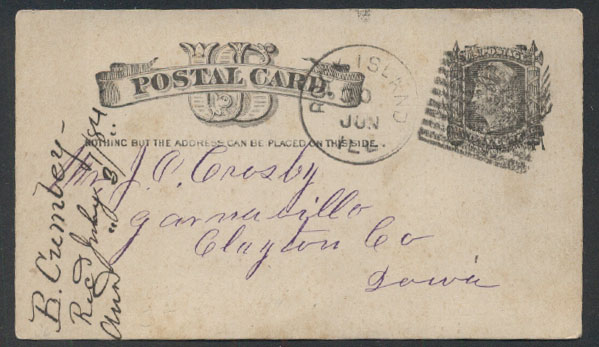 US
POSTAL CARD
NOTHING BUT THE ADDRESS CAN BE PLACED ON THIS SIDE.
ROCK ISLAND
JUN
ILL
Mr J. C. Crosby
Garnavillo
Clayton Co
Iowa
B. Crumbey -
Recd July 3/84
Ansd " "